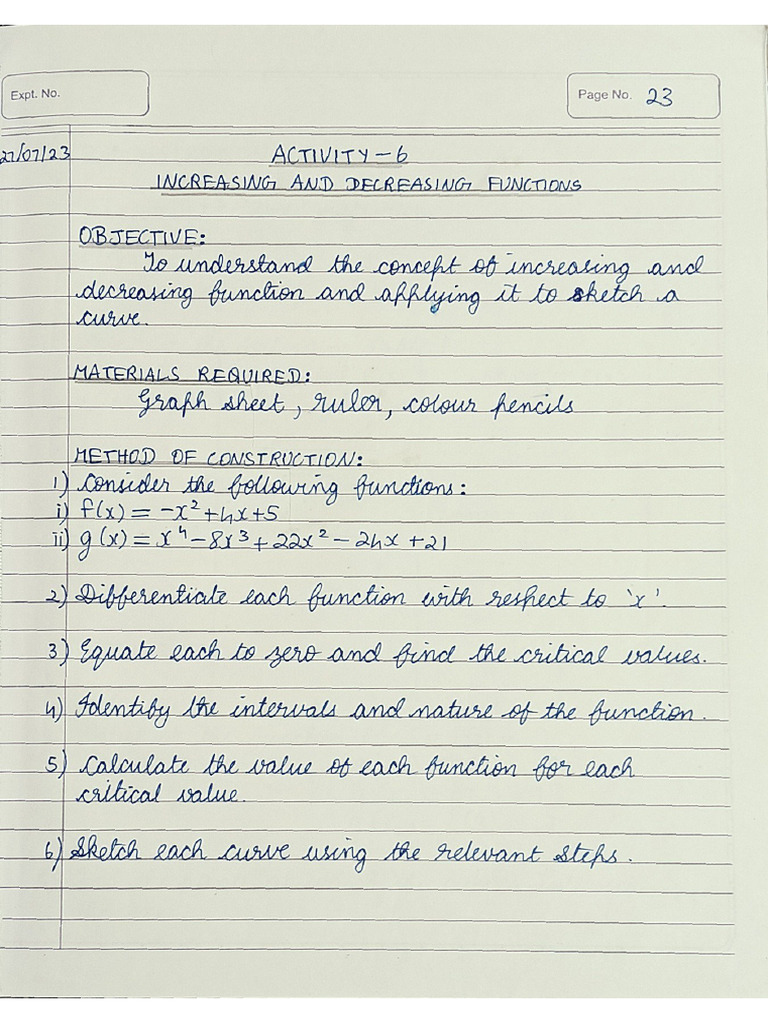 Expt. No.
Page No. 23
27/07/23
ACTIVITY-6
INCREASING AND DECREASING FUNCTIONS
OBJECTIVE:
To understand the concept of increasing and
decreasing function and applying it to sketch a
curve.
MATERIALS REQUIRED:
Graph sheet, ruler, colour pencils
METHOD OF CONSTRUCTION:
1) Consider the following functions:
i) f(x) = -x² + 4x + 5
ii) g(x) = x⁴ - 8x³ + 22x² - 24x + 21
2) Differentiate each function with respect to 'x'.
3) Equate each to zero and find the critical values.
4) Identify the intervals and nature of the function.
5) Calculate the value of each function for each
critical value.
6) Sketch each curve using the relevant steps.